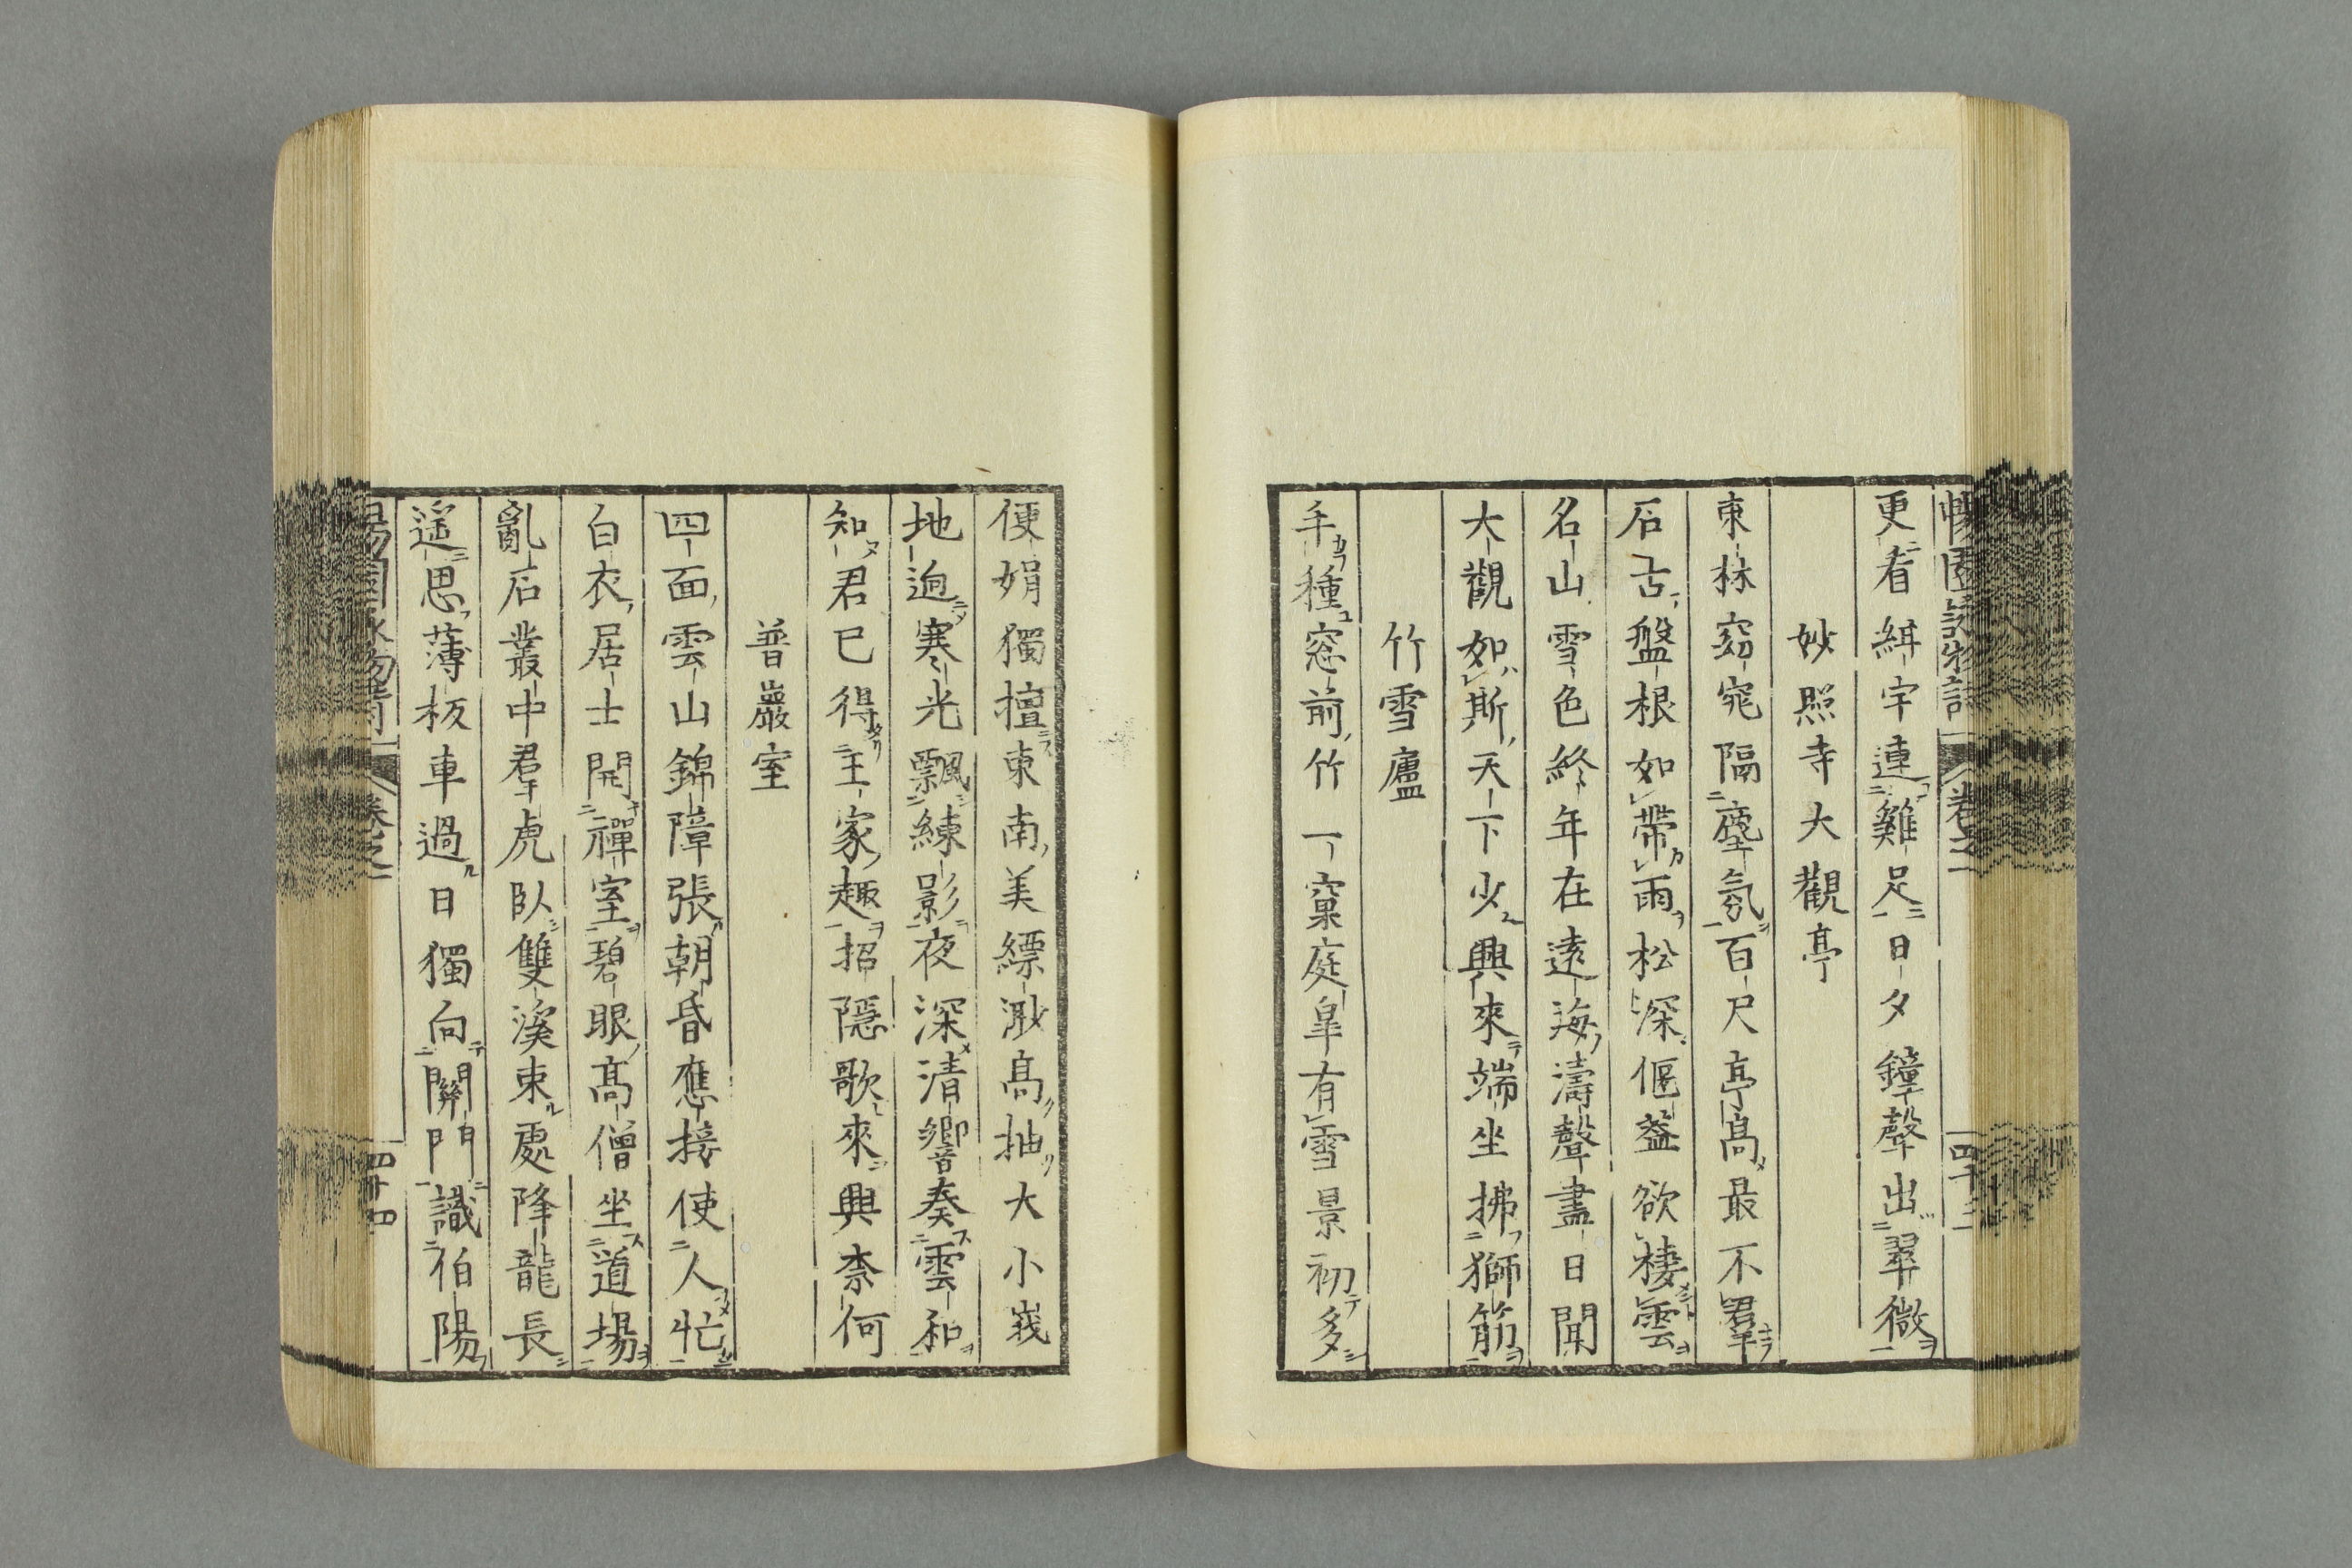 更看緝宇連雞足日夕鐘聲出翠微
妙照寺大觀亭
東林窈窕隔塵氛百尺亭高最不羣
石古盤根如帶雨松深偃蓋欲棲雲
名山雪色終年在遠海濤聲盡日聞
大觀如斯天下少興來端坐拂獅筋
竹雪廬
手種窓前竹一窠庭皐有雪景初多
便娟獨擅東南美縹渺高抽大小峩
地迥寒光飄練影夜深清響奏雲和
知君已得主家趣招隱歌來興柰何
普巖室
四面雲山錦障張朝昏應接使人忙
白衣居士開禪室碧眼高僧坐道場
亂石叢中羣虎臥雙溪束處降龍長
遥思薄板車過日獨向關門識伯陽
四十四